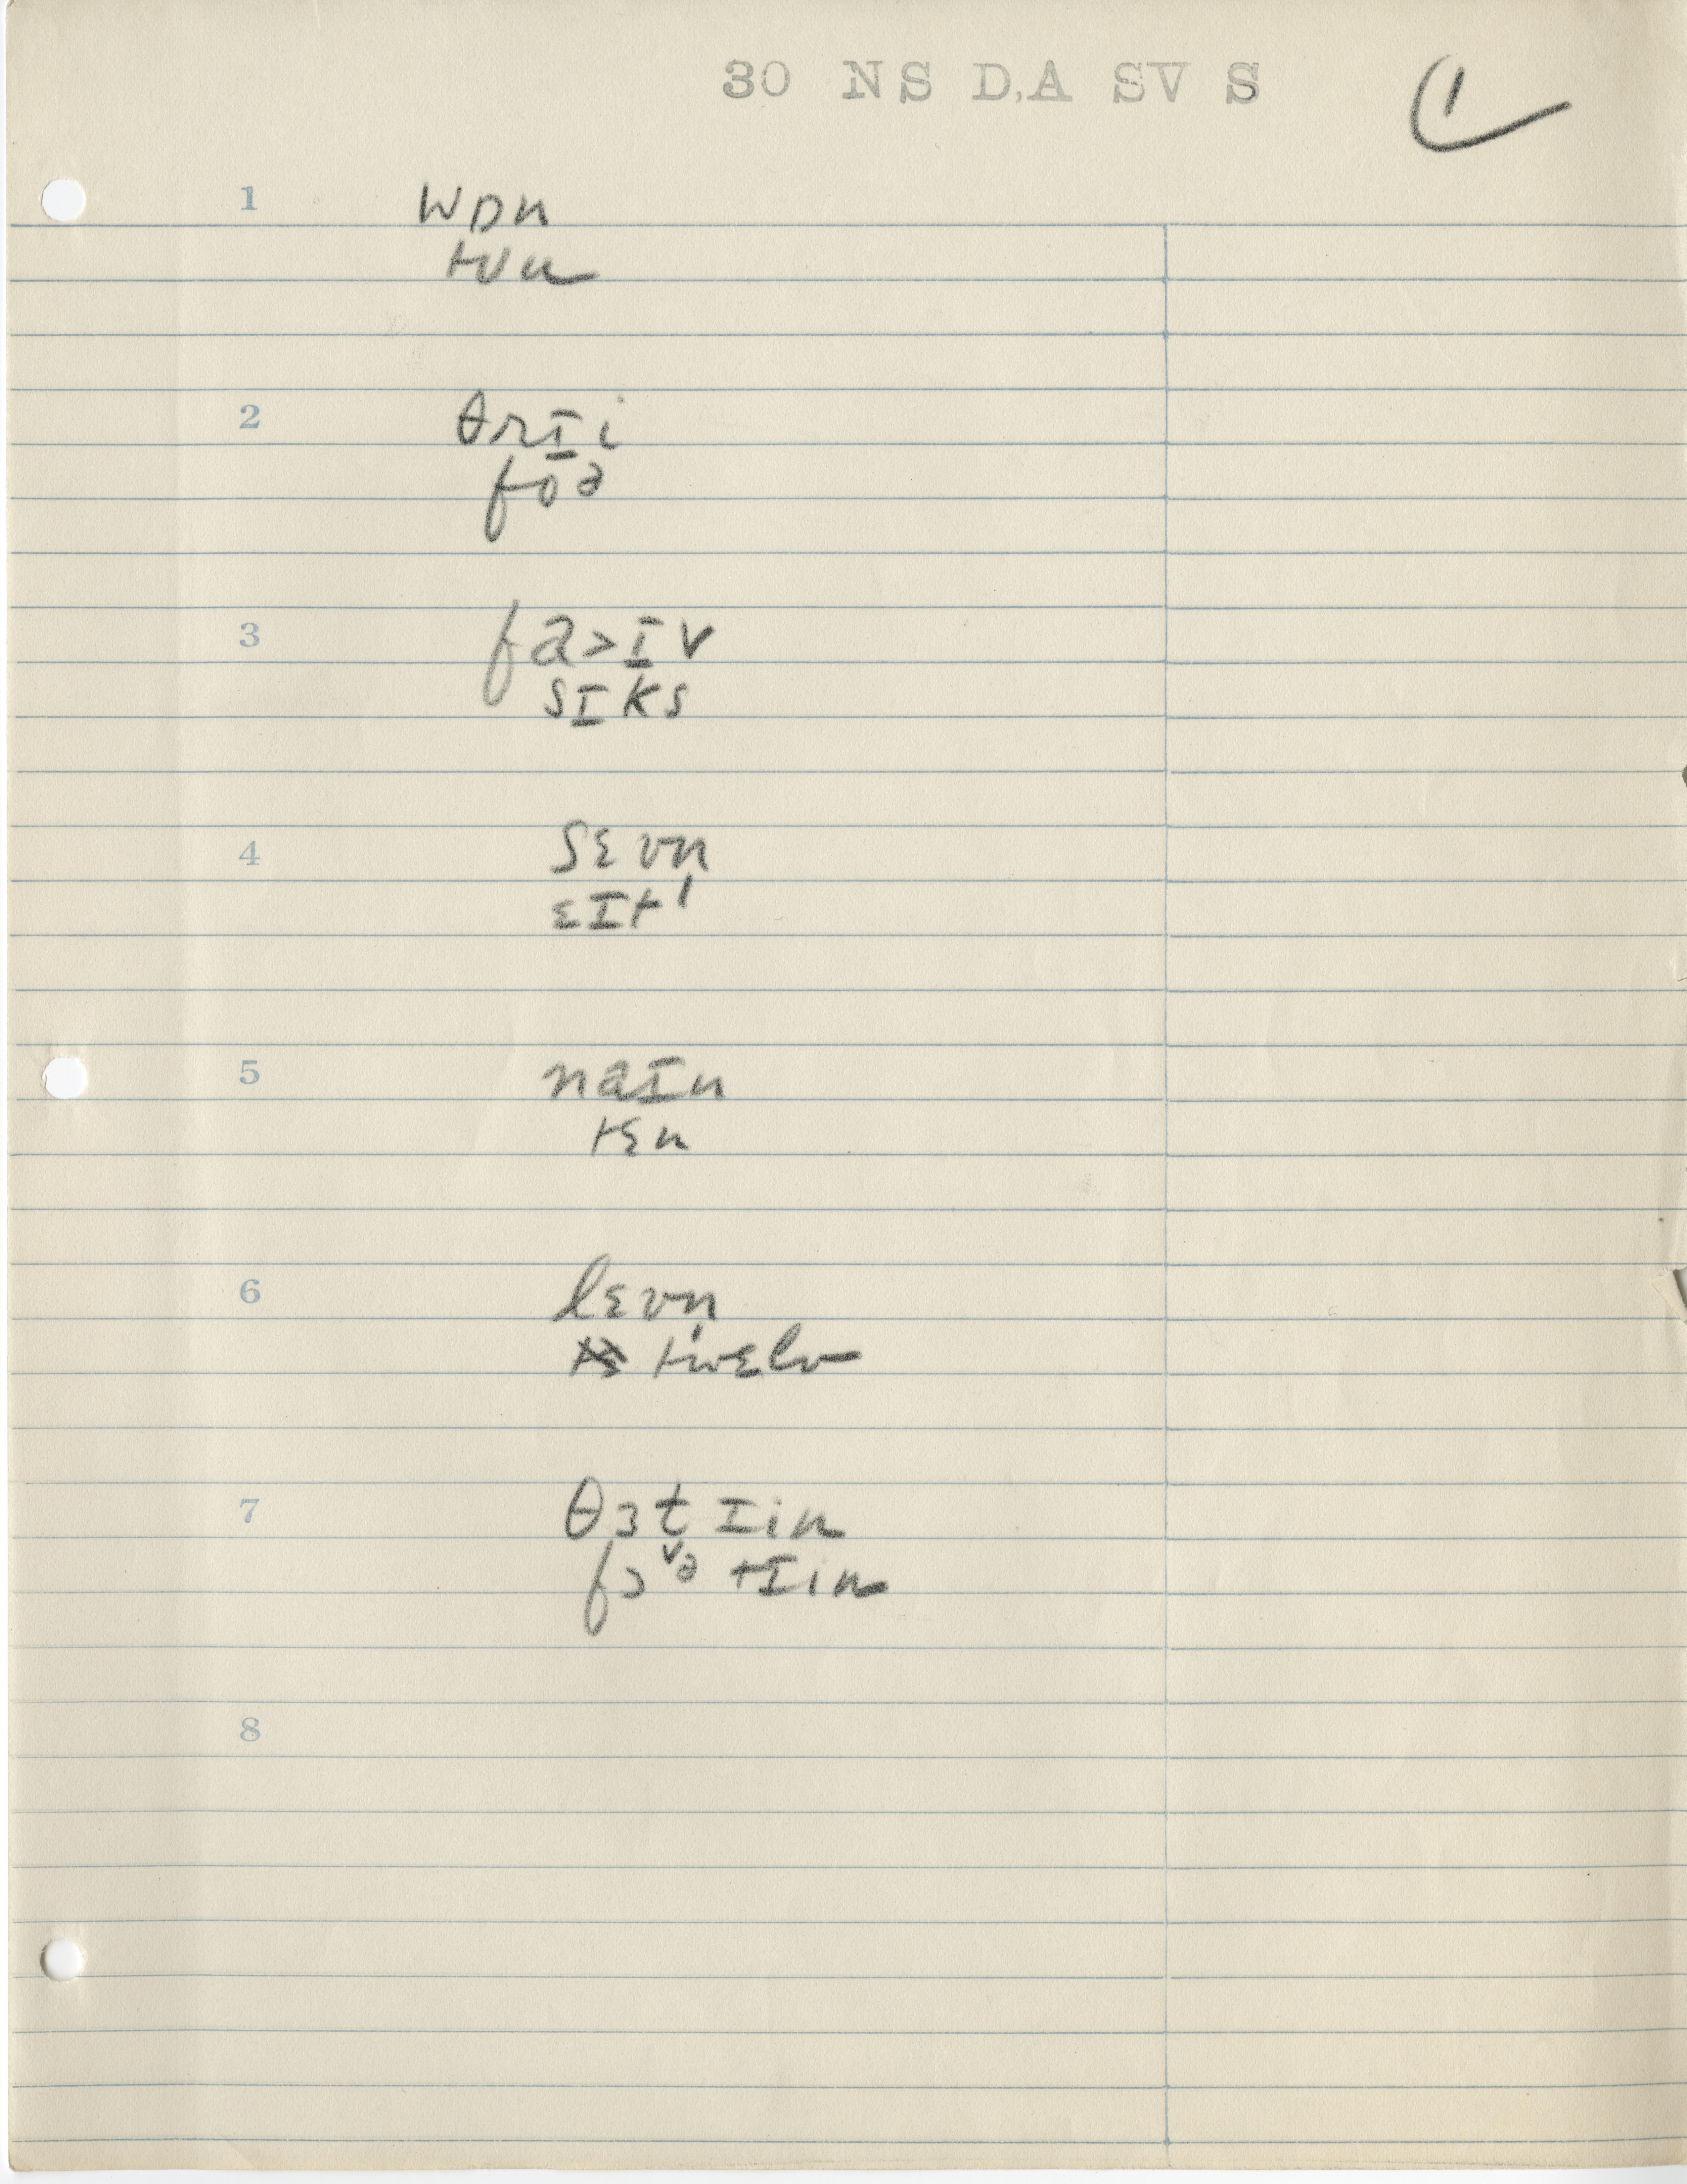 30 NS D,A SV S
1
1 wɒn
tʊu
2 θrɪi
foə
3 fa>ɪv
sɪks
4 sɛvn
ɛɪt'
5 naɪn
tɛn
6 lɛvn̩
twɛlv
7 θɜt̬ɪin
fɔᵛə tɪin
8